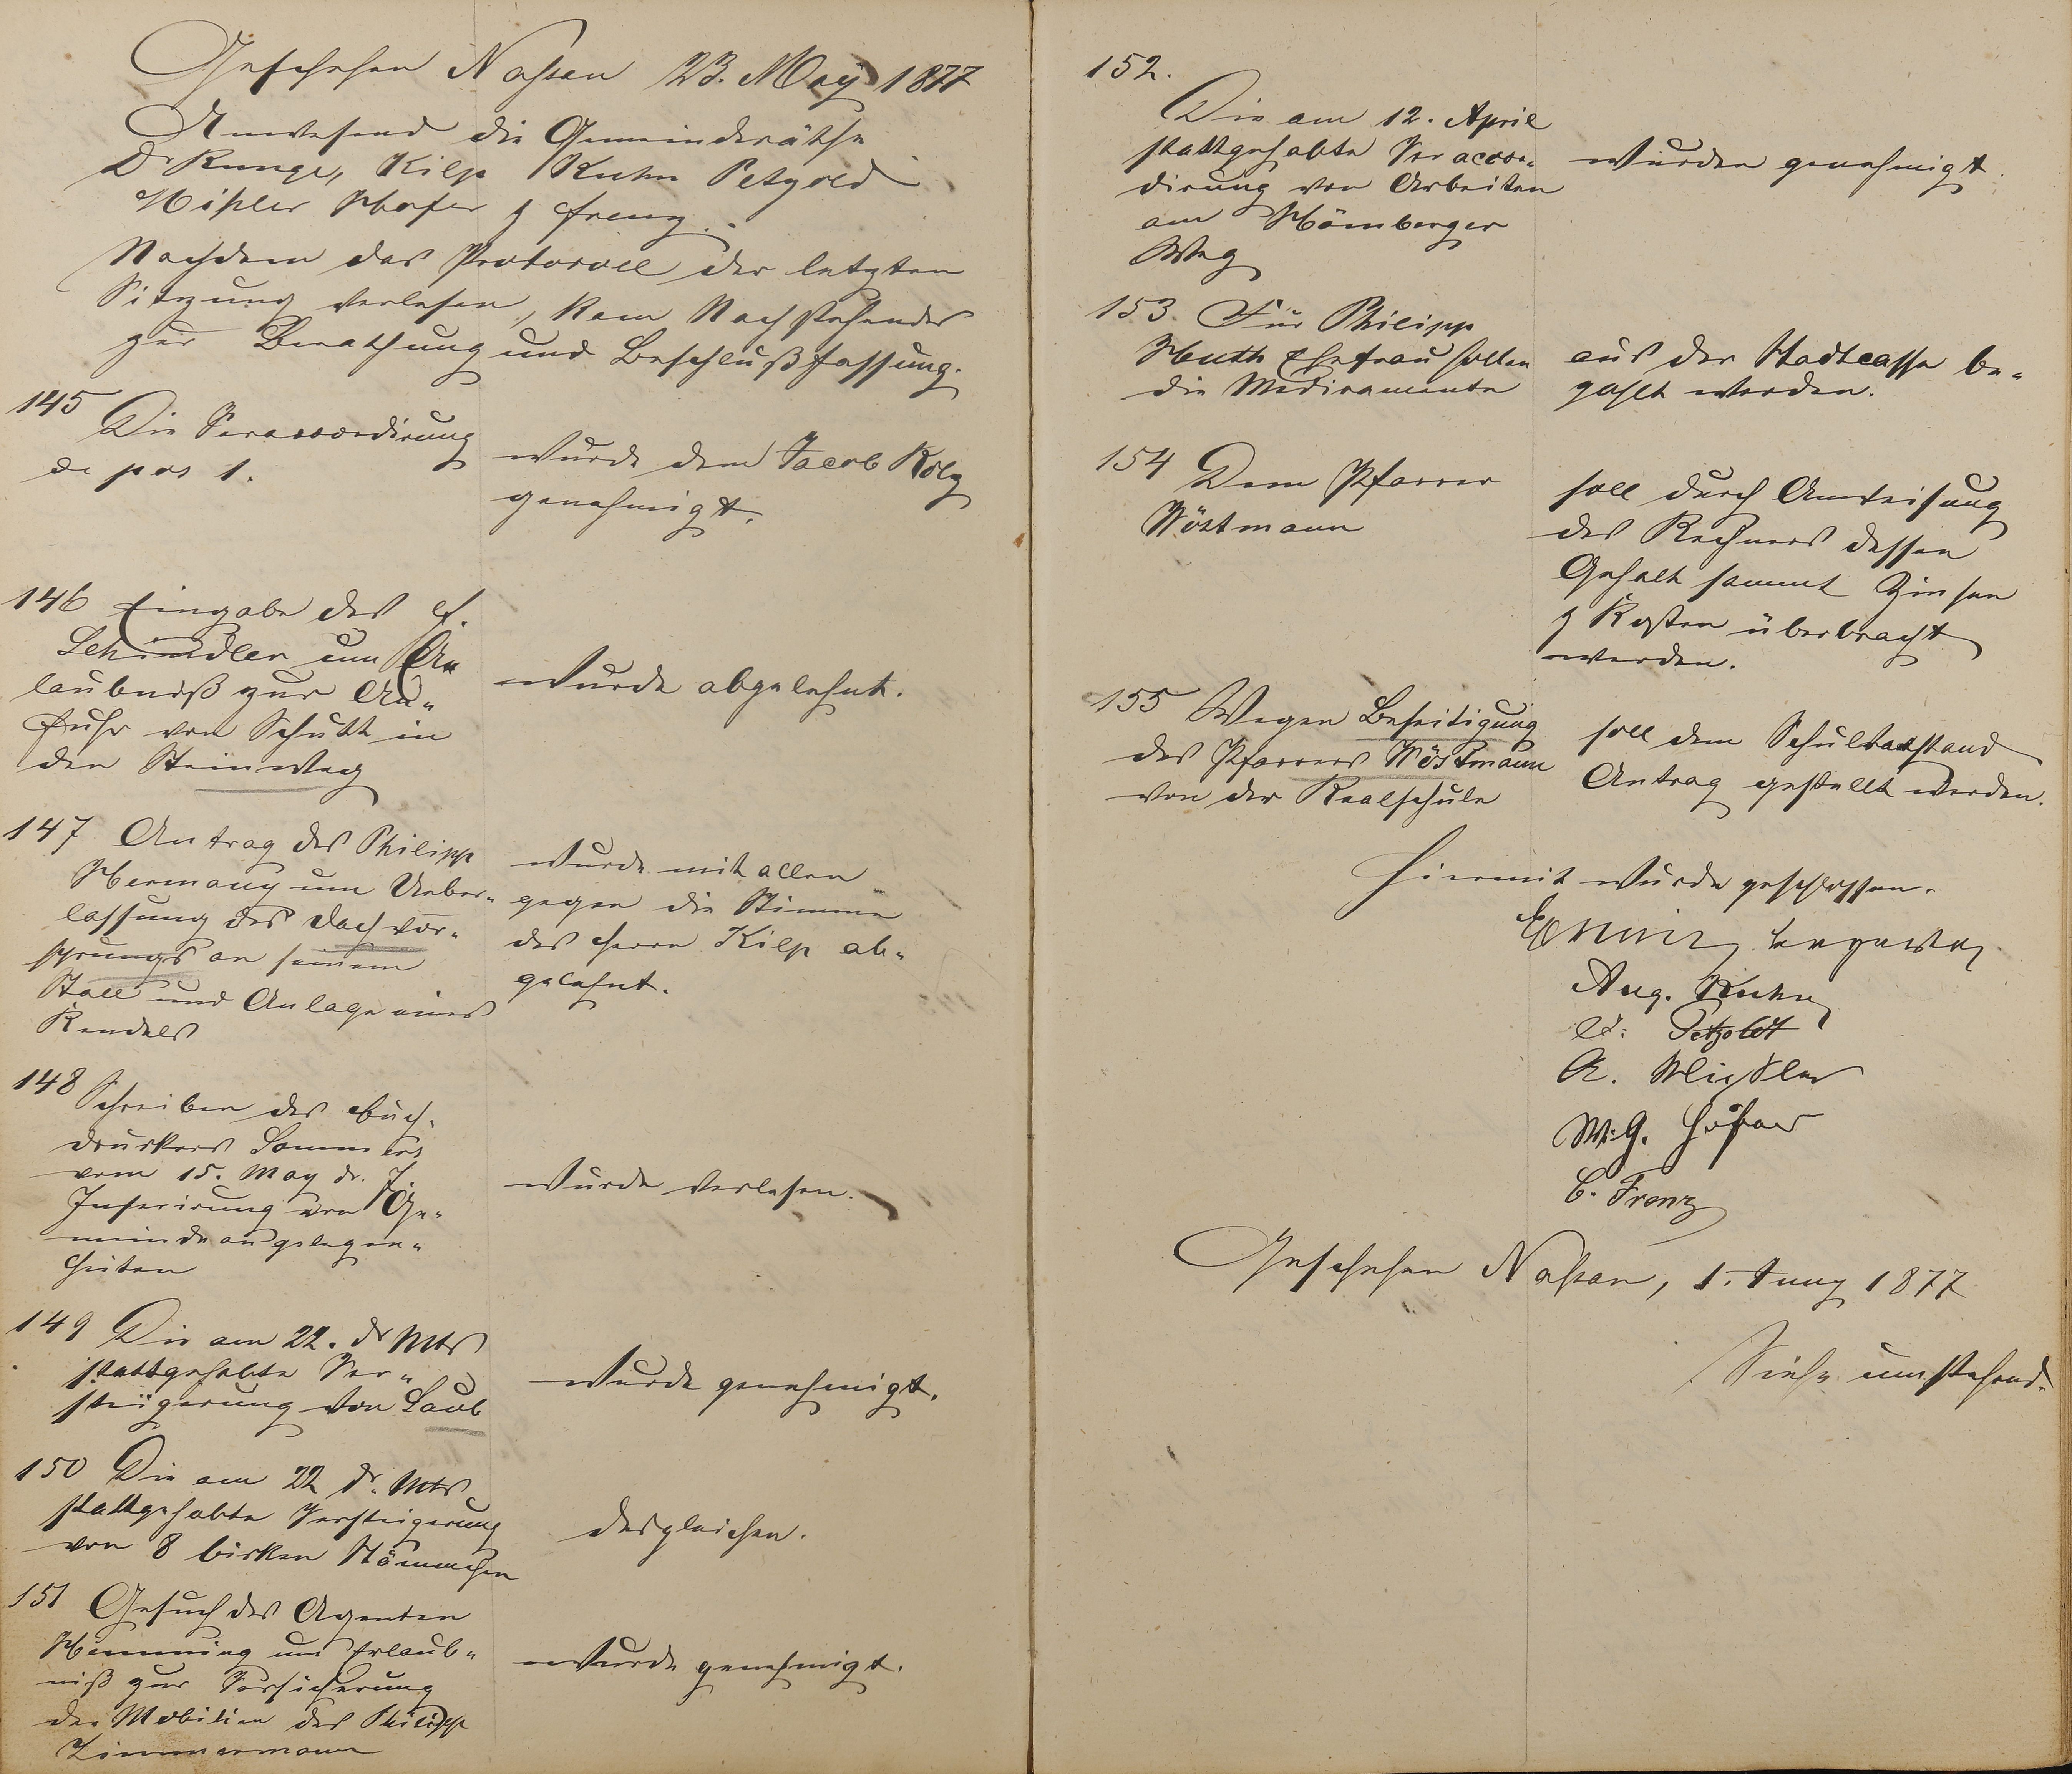 Geschehen Nassau 23. May 1877
Anwesend die Gemeinderäthe
Dr Runge, Kilp Kuhn Petzold
Mißler Hofer & Frenz.
Nachdem das Protocoll der letzten
Sitzung verlesen, kam Nachstehendes
zur Berathung und Beschlußfassung.
145
Die Veraccordirung
de pos 1.
wurde dem Jacob Kolz
genehmigt.
146 Eingabe des
Schindler um Er
laubniß zur An-
fuhr von Schutt in
den Steinweg
wurde abgelehnt.
147. Antrag des Philipp
Hermany um Ueber-
lassung des Dachvor-
sprungs an seinem
Stall und Anlage eines
Kendels
wurde mit allen
gegen die Stimme
des Herrn Kilp ab-
gelehnt.
148
Schreiben des Buch-
druckers Sommers
vom 15. May dr. J.
Inserirung von Ge-
meindeangelegen-
heiten
wurde verlesen.
149 Die am 22. dr Mts
stattgehabte Ver-
steigerung von Laub
wurde genehmigt.
150 Die am 22 dr. Mts
stattgehabte Versteigerung
von 8 birken Stämmchen
desgleichen.
151 Gesuch des Agenten
Henning um Erlaub-
niß zur Versicherung
der Mobilien des Philipp
Zimmermann
wurde genehmigt.
152.
Die am 12. April
stattgehabte Veraccor-
dirung von Arbeiten
am Hömberger
Weg
wurden genehmigt.
153. Für Philipp
Huth Ehefrau sollen
die Medicamente
aus der Stadtcasse be-
zahlt werden.
154 Dem Pfarrer
Wöstmann
soll durch Anweisung
des Rechners dessen
Gehalt sammt Zinsen
& Kosten überbracht
werden.
155 Wegen Beseitigung
des Pfarrers Wöstmann
von der Realschule
soll dem Schulvorstand
Antrag gestellt werden.
Hiermit wurde geschlossen.
Aug. Kuhn
Petzoldt
A. Mißler
W. G. Hofer
C. Frenz
Geschehen Nassau, 1. Juny 1877
Siehe umstehend.